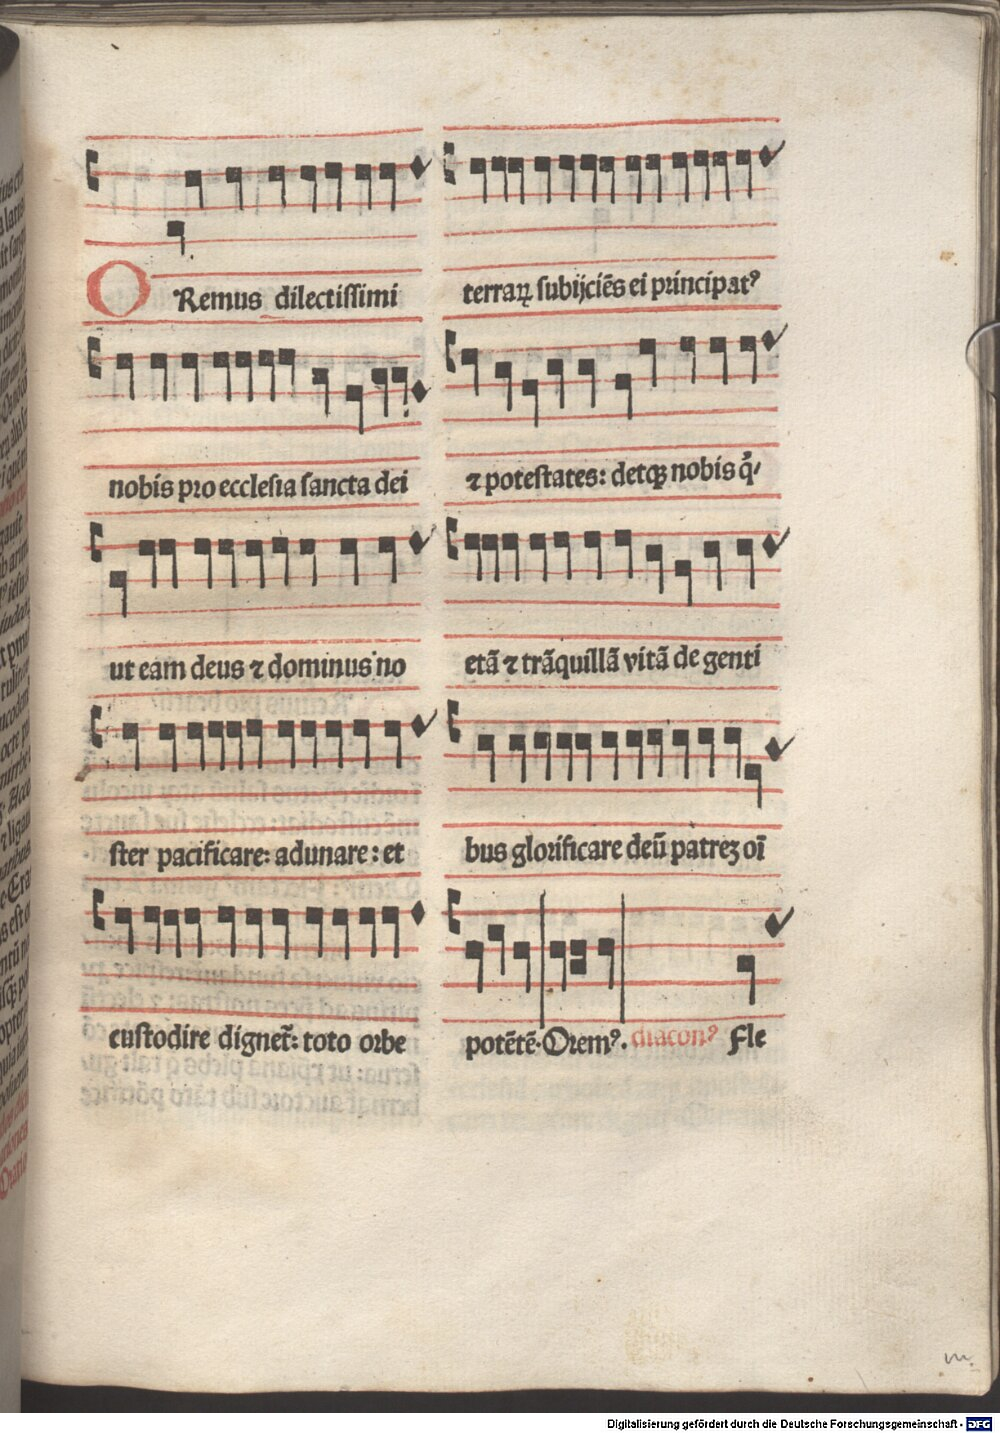 ORemus dilectissimi
nobis pro ecclesia sancta dei
ut eam deus ⁊ dominus no
ster pacificare: adunare: et
custodire dignet̃: toto orbe
terraꝝ subijciẽs ei principatꝰ
⁊ potestates: detqꝫ nobis q̃
etã ⁊ trãquillã vitã de genti
bus glorificare deũ patreꝫ oĩ
potẽtẽ. Oremꝰ. diaconꝰ Fle
m.
Digitalisierung gefördert durch die Deutsche Forschungsgemeinschaft - DFG